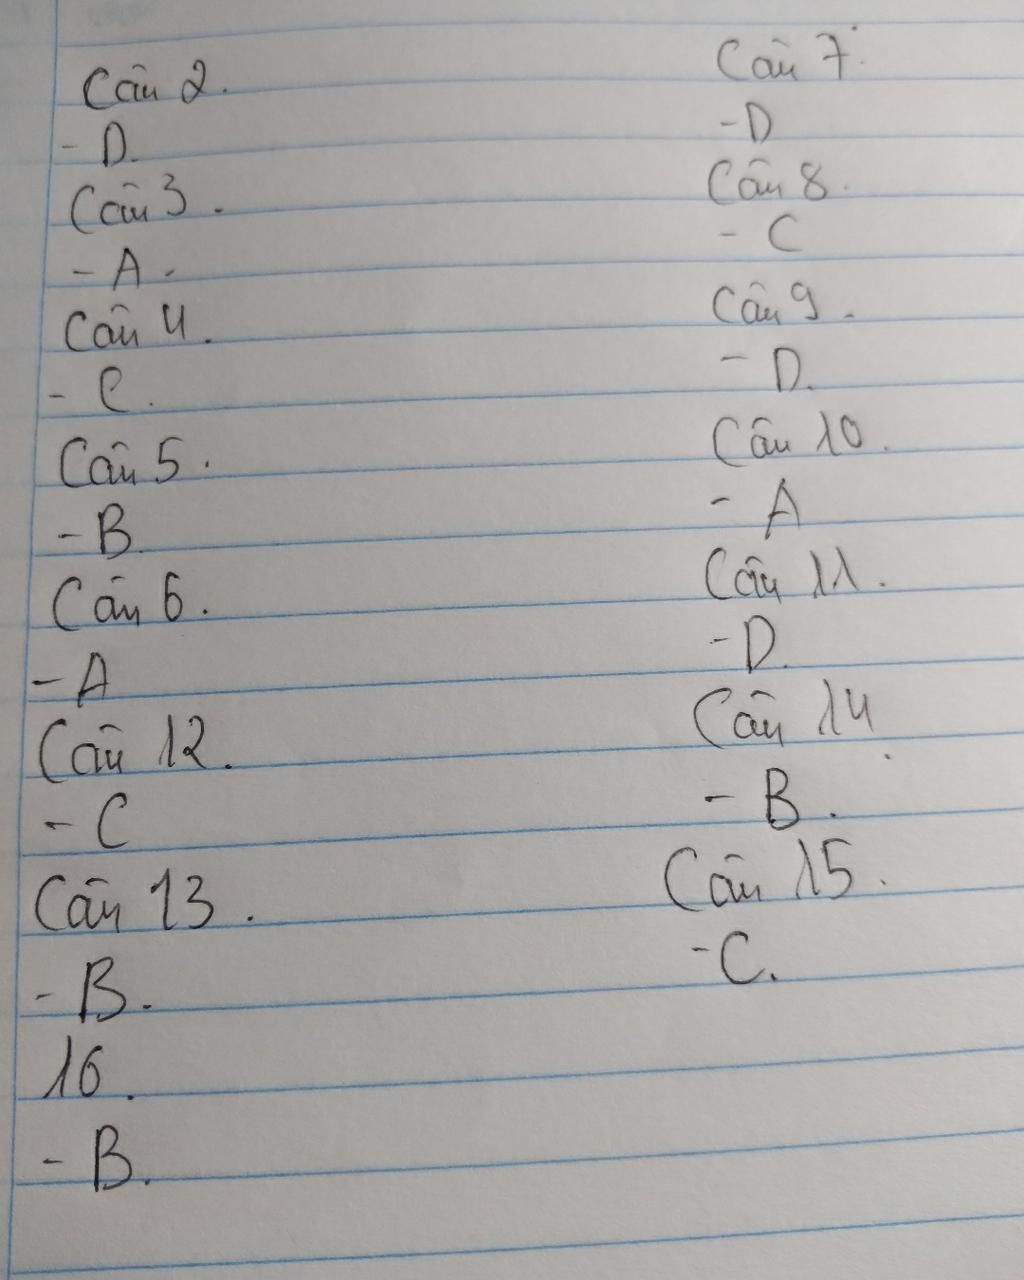 Câu 2.
- D.
Câu 3.
- A.
Câu 4.
- C.
Câu 5.
- B.
Câu 6.
- A
Câu 12.
- C
Câu 13.
- B.
16.
- B.
Câu 7.
- D
Câu 8.
- C
Câu 9.
- D.
Câu 10.
- A
Câu 11.
- D.
Câu 14.
- B.
Câu 15.
- C.